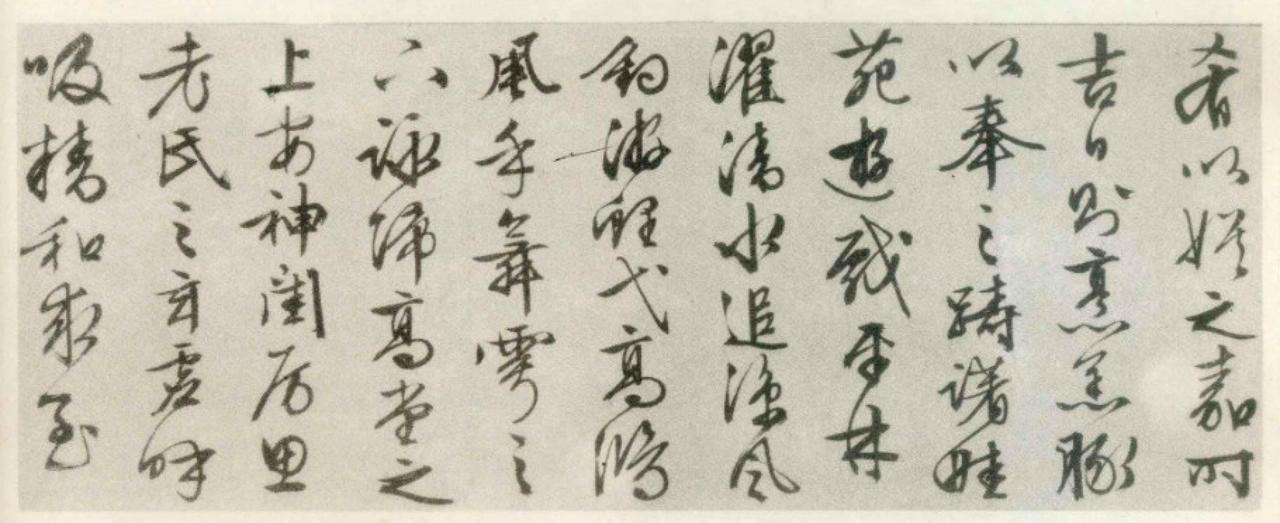 肴以娛之嘉時
吉日則烹羔豚
以奉之躊躇畦
苑遊戲平林
濯清水追涼風
釣游鯉弋高鴻
風乎舞雩之
下詠歸高堂之
上安神閨房思
老氏之玄虛呼
吸精和求至